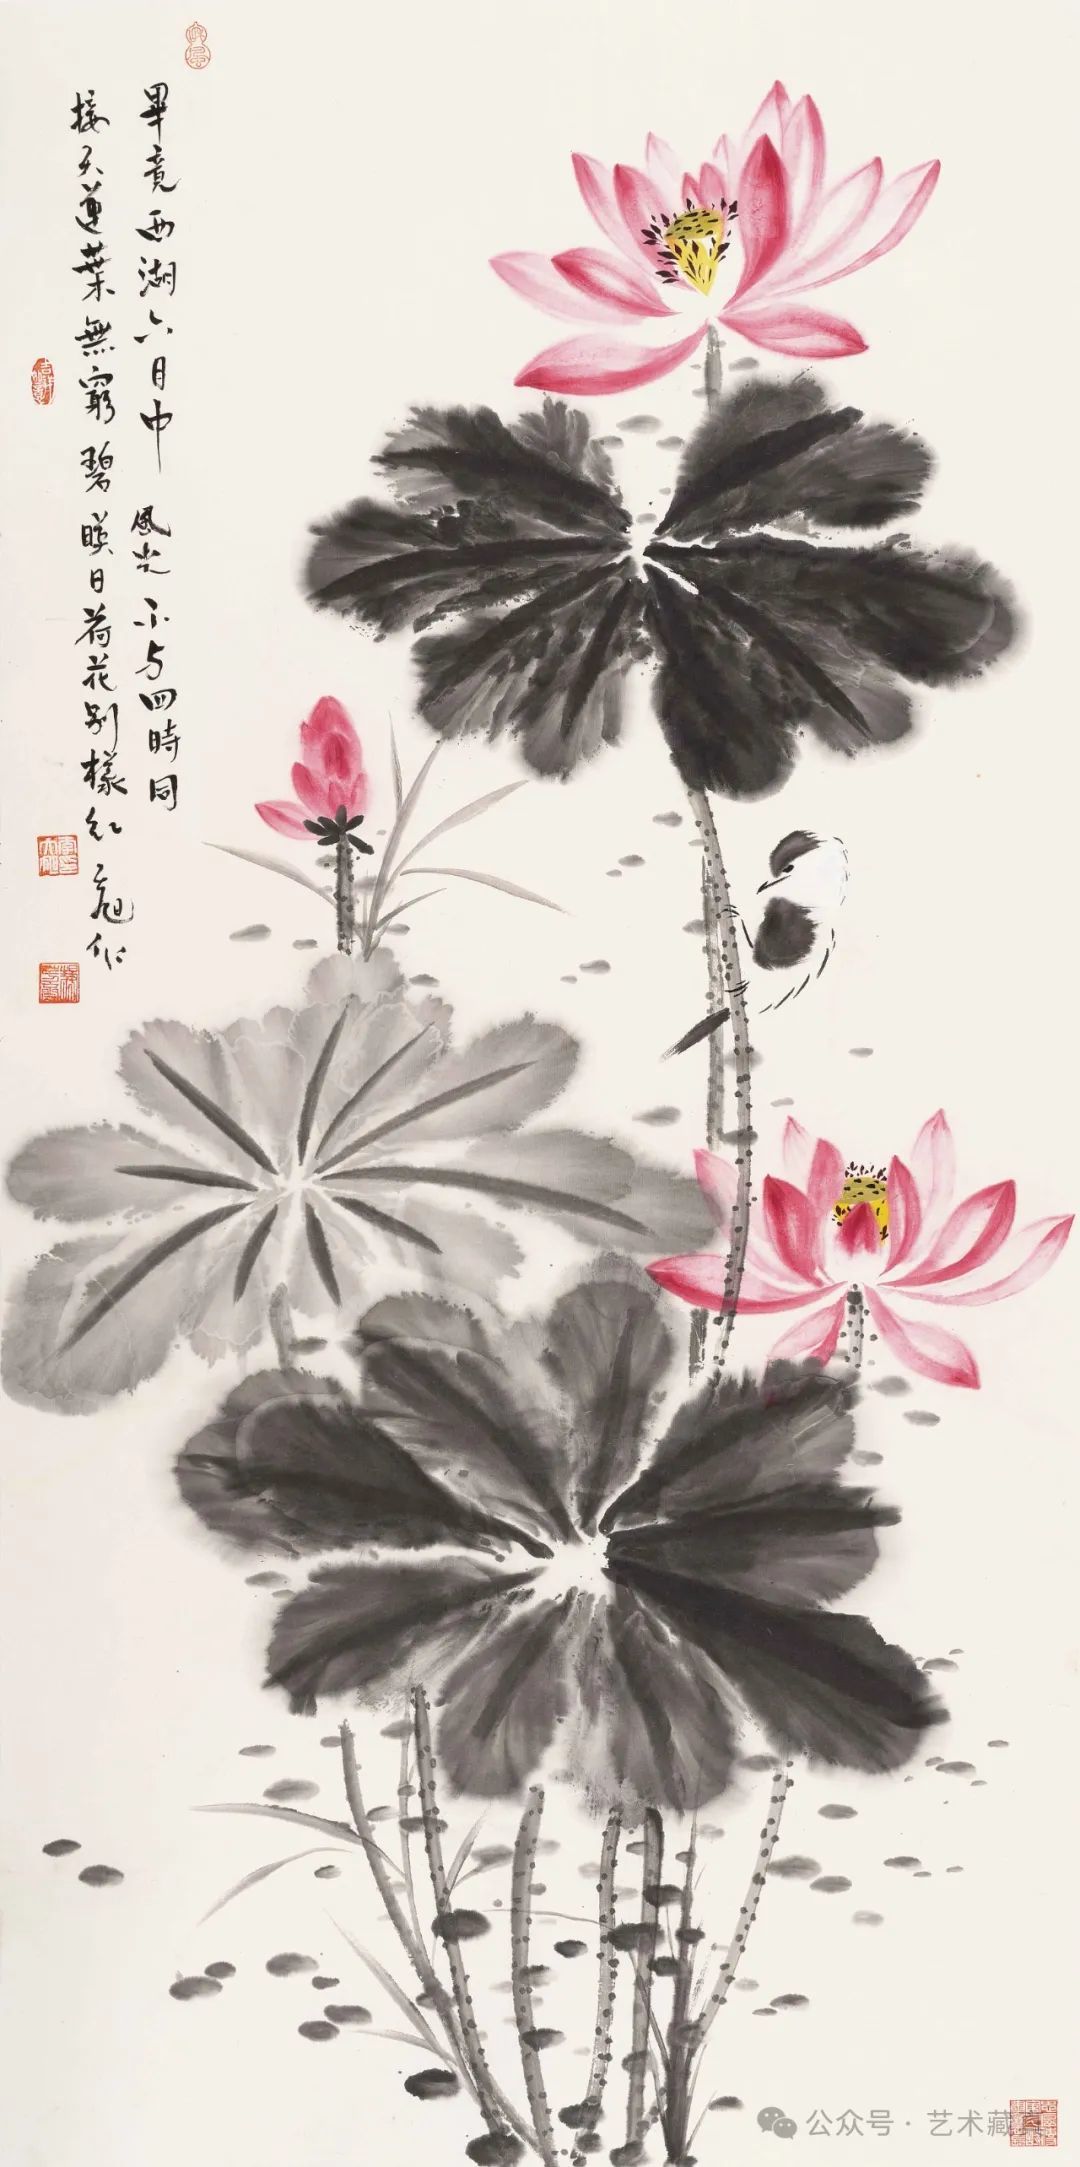 畢竟西湖六月中風光不与四時同
接天蓮葉無窮碧暎日荷花别樣红 作
公众号 · 艺术藏